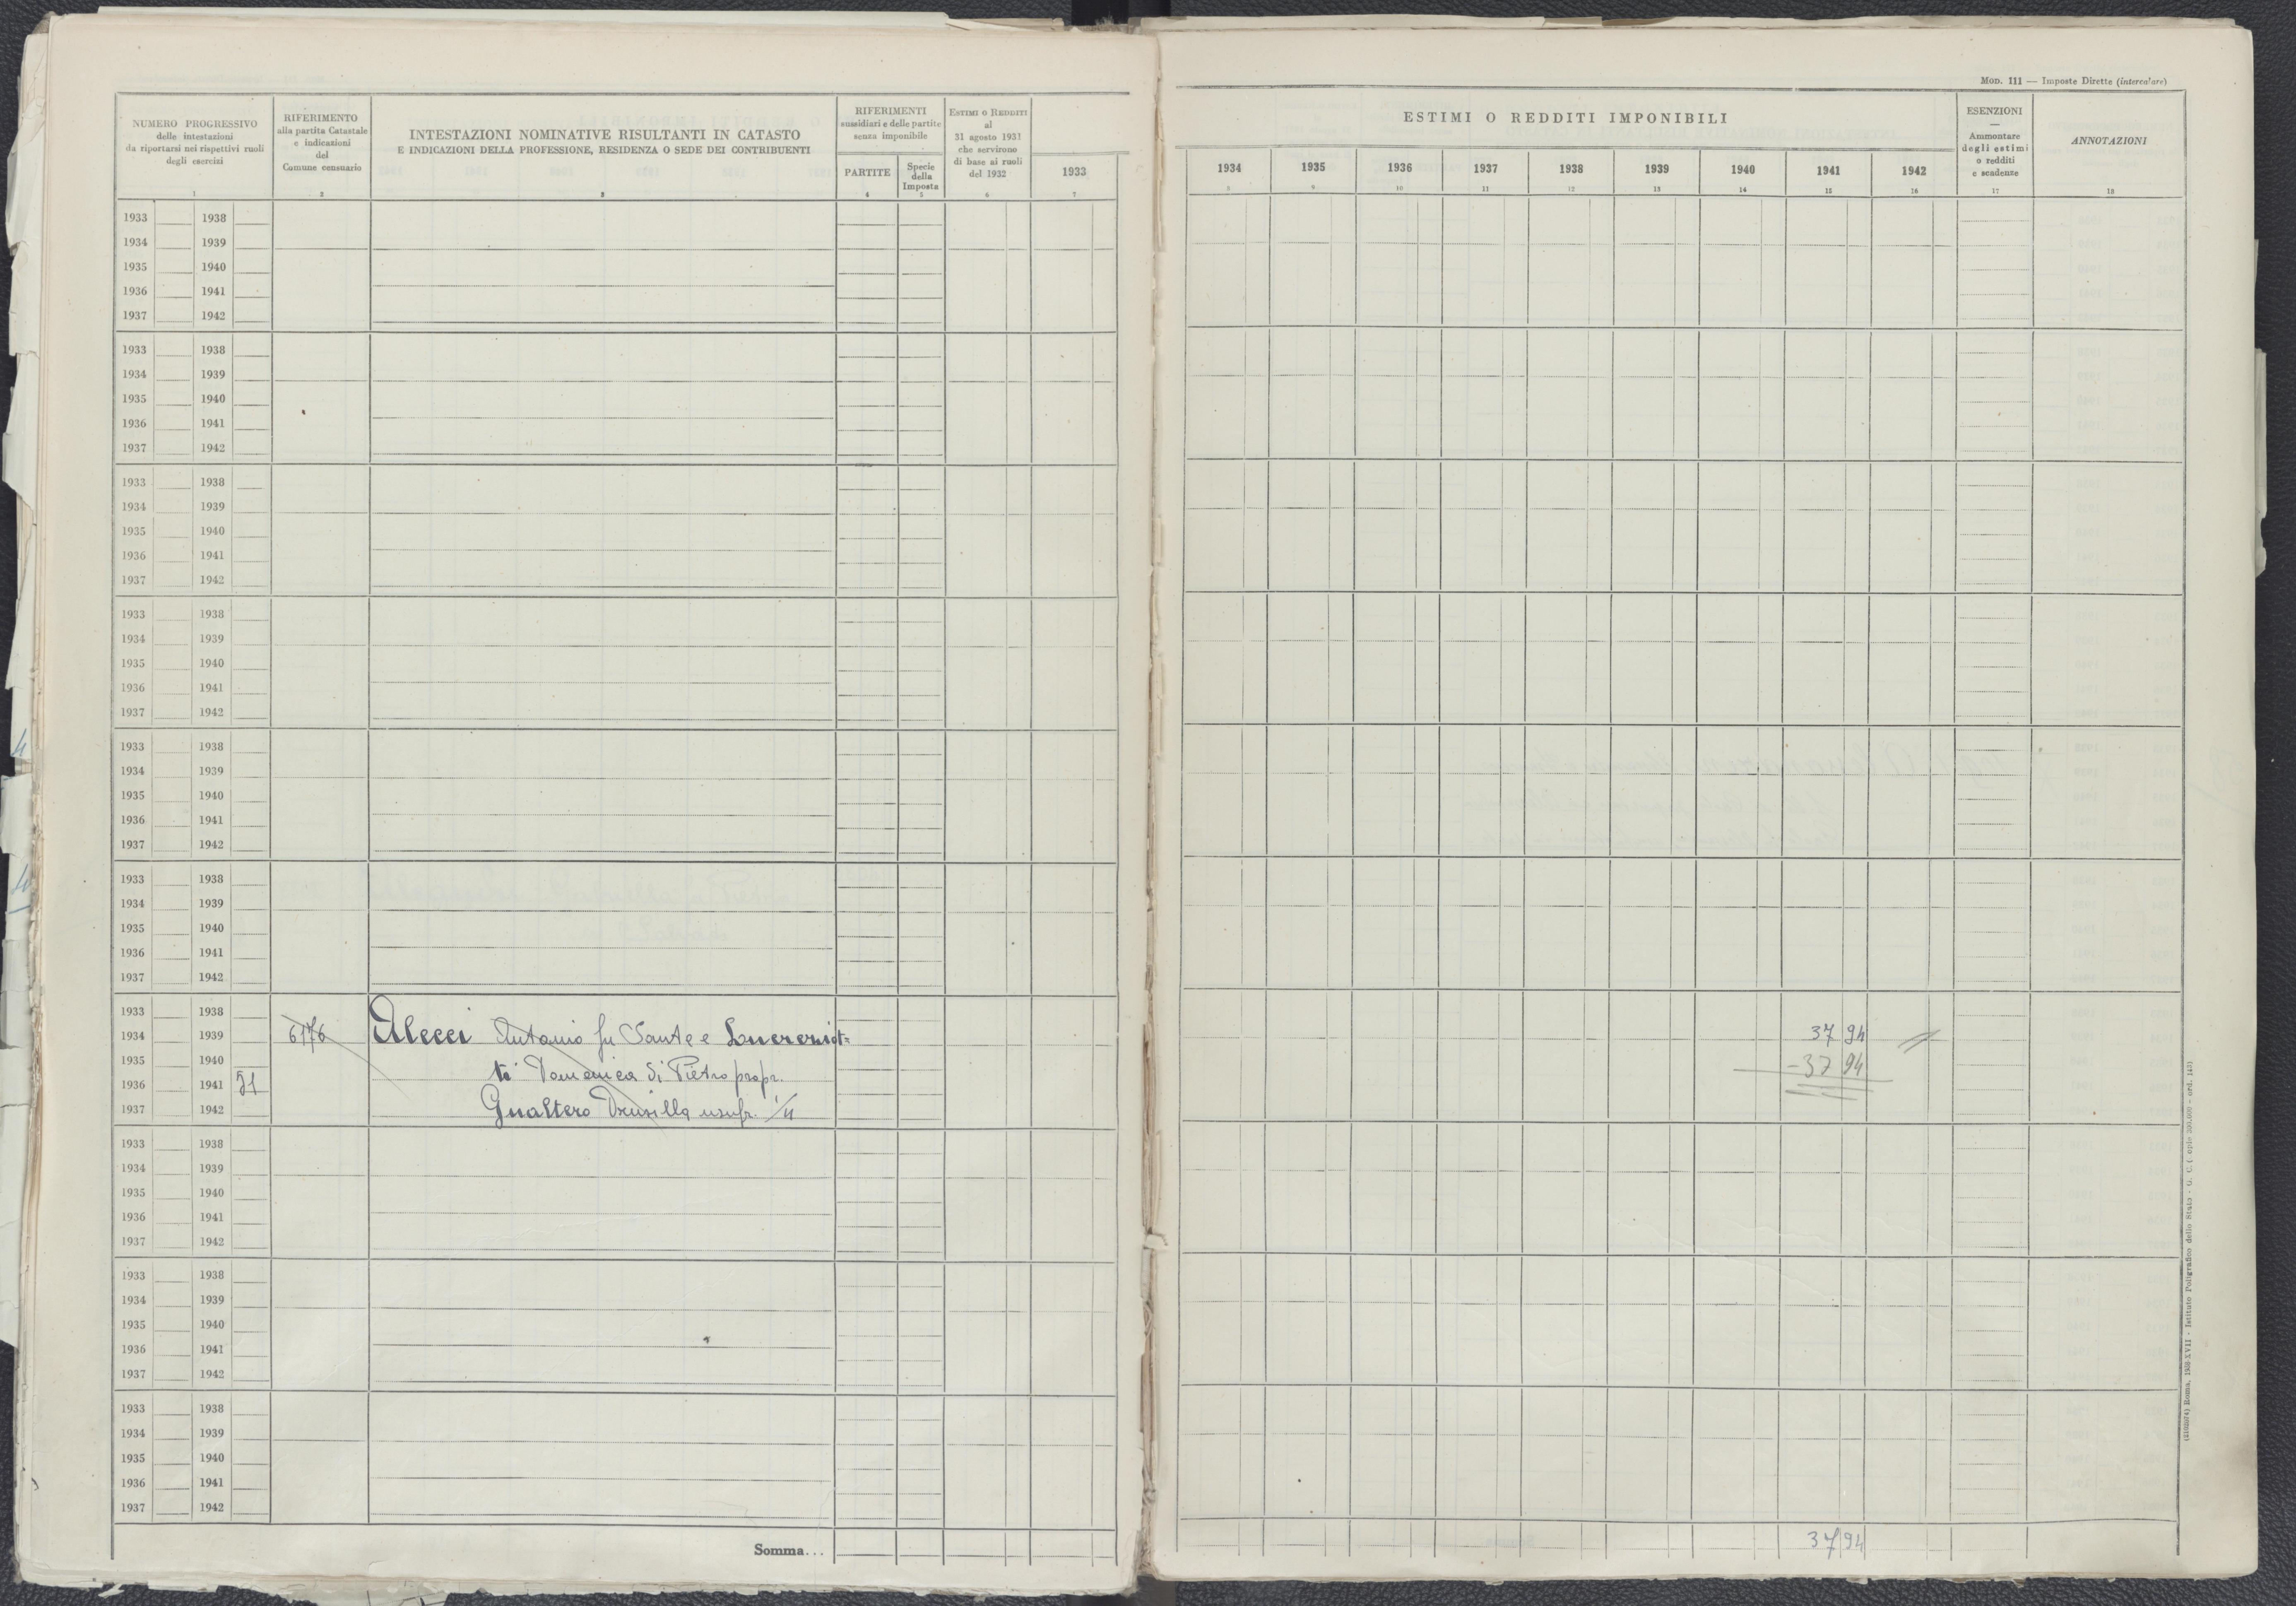 MOD. 111 — Imposte Dirette (intercalare)
NUMERO PROGRESSIVO
delle intestazioni
da riportarsi nei rispettivi ruoli
degli esercizi
1
RIFERIMENTO
alla partita Catastale
e indicazioni
del
Comune censuario
2
INTESTAZIONI NOMINATIVE RISULTANTI IN CATASTO
E INDICAZIONI DELLA PROFESSIONE, RESIDENZA O SEDE DEI CONTRIBUENTI
3
RIFERIMENTI
sussidiari e delle partite
senza imponibile
PARTITE
4
Specie
della
Imposta
5
ESTIMI O REDDITI
al
31 agosto 1931
che servirono
di base ai ruoli
del 1932
6
1933
7
ESTIMI O REDDITI IMPONIBILI
1934 1935 1936 1937 1938 1939 1940 1941 1942
8 9 10 11 12 13 14 15 16
ESENZIONI
—
Ammontare
degli estimi
o redditi
e scadenze
17
ANNOTAZIONI
18
1933 1938
1934 1939
1935 1940
1936 1941
1937 1942
1933 1938
1934 1939
1935 1940
1936 1941
1937 1942
1933 1938
1934 1939
1935 1940
1936 1941
1937 1942
1933 1938
1934 1939
1935 1940
1936 1941
1937 1942
1933 1938
1934 1939
1935 1940
1936 1941
1937 1942
1933 1938
1934 1939
1935 1940
1936 1941
1937 1942
1933 1938
1934 1939 6176 Alecci Antonio fu Sante e Lucreziot= 37 94
1935 1940 -37 94
1936 1941 51 ti Domenica di Pietro propr.
1937 1942 Gualtero Drusilla usufr. 1/4
1933 1938
1934 1939
1935 1940
1936 1941
1937 1942
1933 1938
1934 1939
1935 1940
1936 1941
1937 1942
1933 1938
1934 1939
1935 1940
1936 1941
1937 1942
Somma... 37 94
Roma, 1939-XVII - Istituto Poligrafico dello Stato - G. C.